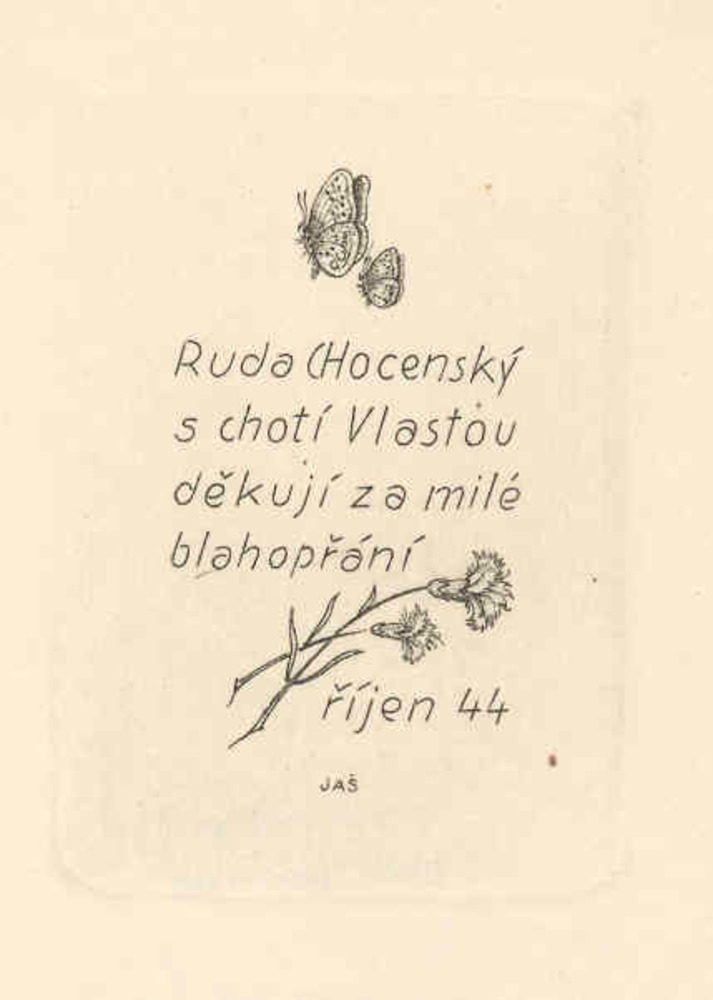 Ruda CHocenský
s chotí Vlastou
děkují za milé
blahopřání
říjen 44
JAŠ